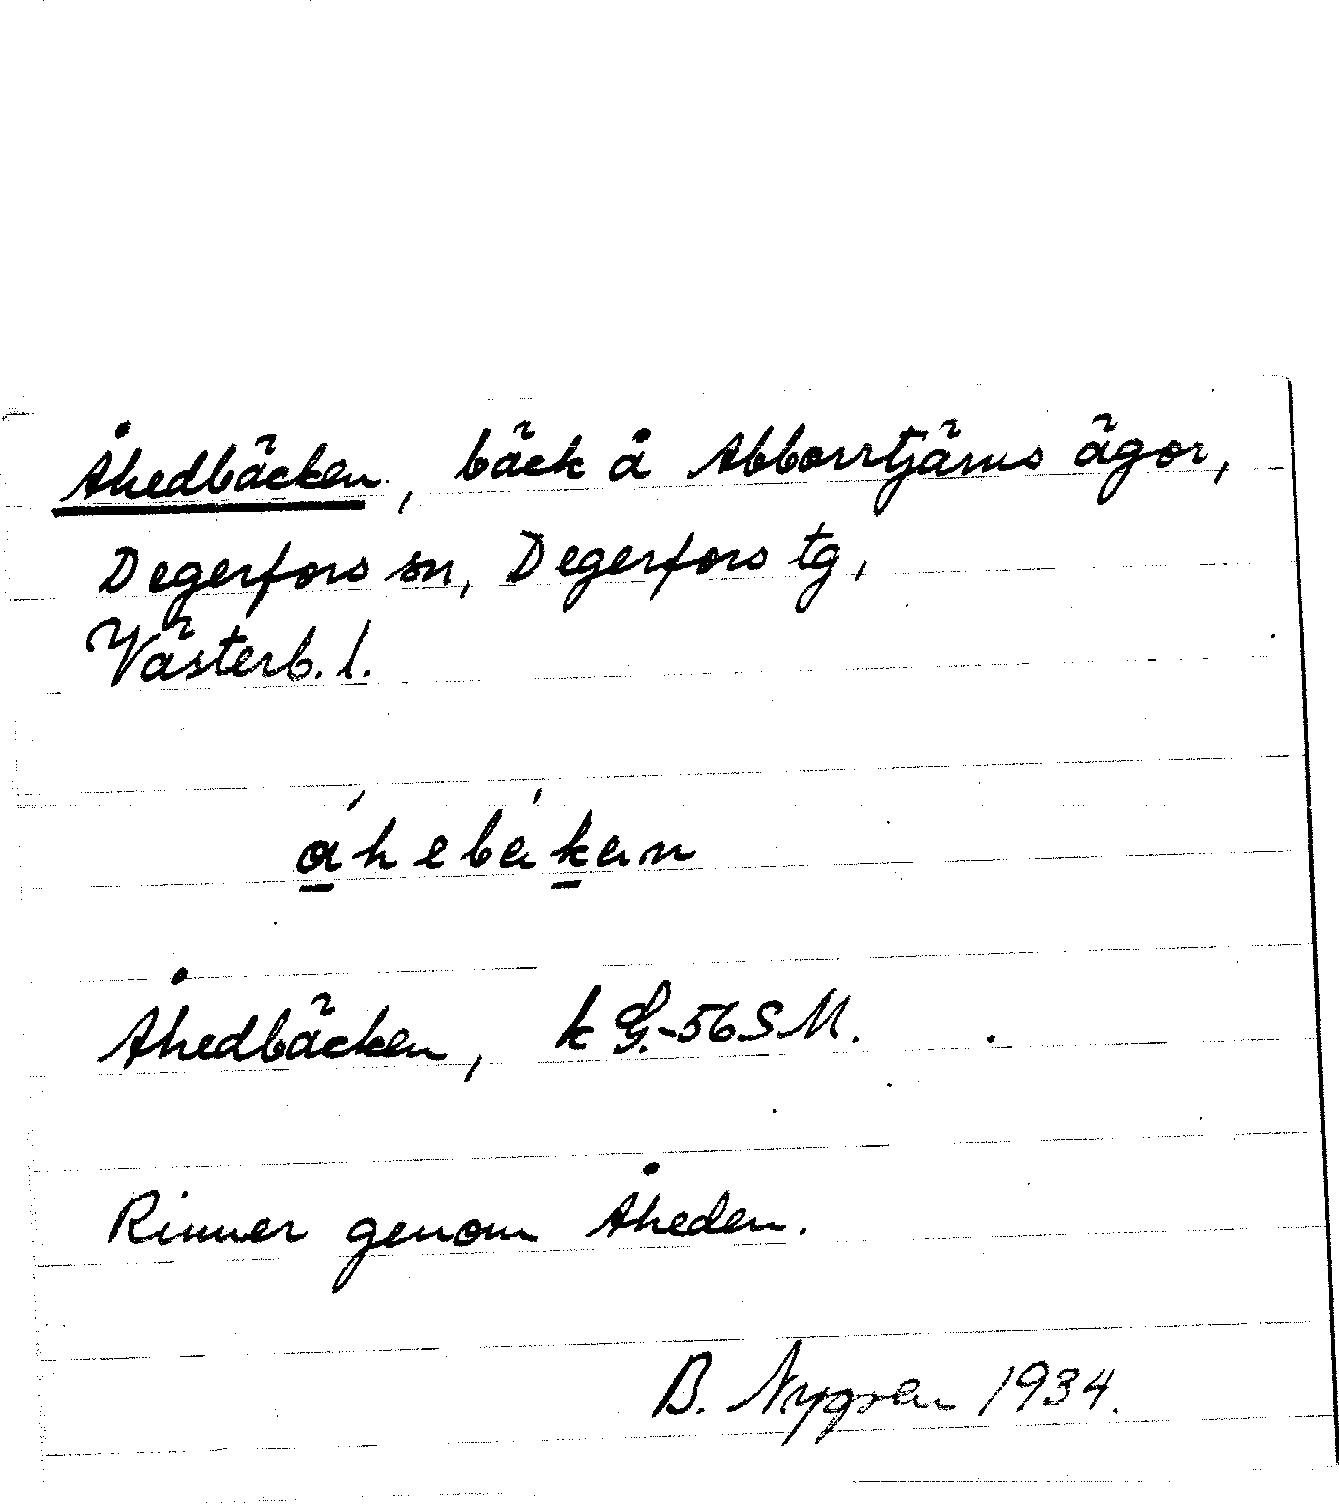 Åhedbäcken, bäck å Abborrtjärns ägor,
Degerfors sn, Degerfors tg,
Västerb. l.
Åhedbäcken, k G.-56SM.
Rinner genom Åheden.
B. Nygren 1934.